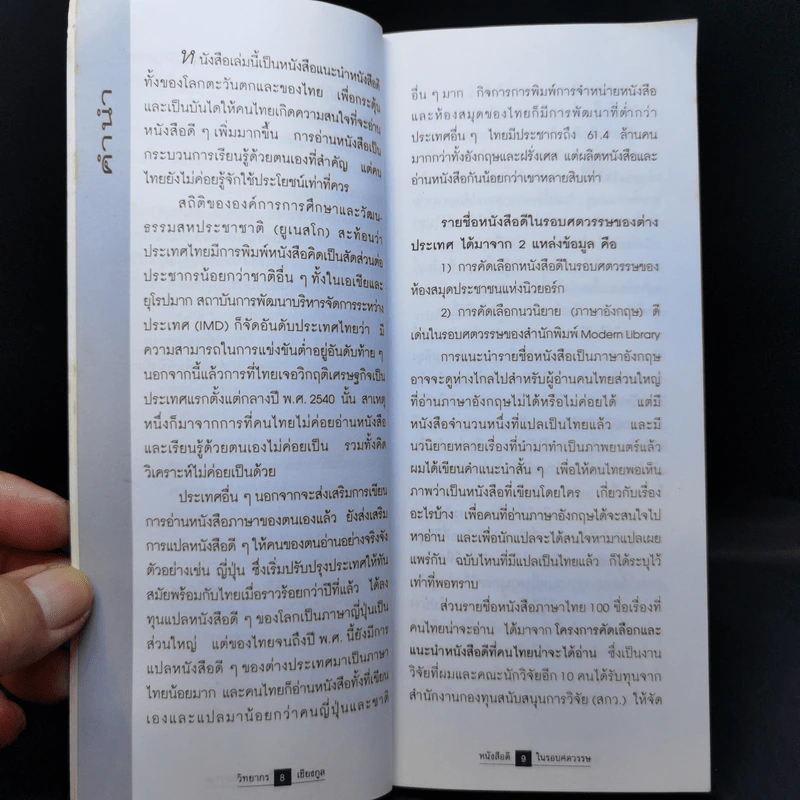 คำนำ
หนังสือเล่มนี้เป็นหนังสือแนะนำหนังสือดี
ทั้งของโลกตะวันตกและของไทย เพื่อกระตุ้น
และเป็นบันไดให้คนไทยเกิดความสนใจที่จะอ่าน
หนังสือดี ๆ เพิ่มมากขึ้น การอ่านหนังสือเป็น
กระบวนการเรียนรู้ด้วยตนเองที่สำคัญ แต่คน
ไทยยังไม่ค่อยรู้จักใช้ประโยชน์เท่าที่ควร
สถิติขององค์การการศึกษาและวัฒน-
ธรรมสหประชาชาติ (ยูเนสโก) สะท้อนว่า
ประเทศไทยมีการพิมพ์หนังสือคิดเป็นสัดส่วนต่อ
ประชากรน้อยกว่าชาติอื่น ๆ ทั้งในเอเชียและ
ยุโรปมาก สถาบันการพัฒนาบริหารจัดการระหว่าง
ประเทศ (IMD) ก็จัดอันดับประเทศไทยว่า มี
ความสามารถในการแข่งขันต่ำอยู่อันดับท้าย ๆ
นอกจากนี้แล้วการที่ไทยเจอวิกฤติเศรษฐกิจเป็น
ประเทศแรกตั้งแต่กลางปี พ.ศ. 2540 นั้น สาเหตุ
หนึ่งก็มาจากการที่คนไทยไม่ค่อยอ่านหนังสือ
และเรียนรู้ด้วยตนเองไม่ค่อยเป็น รวมทั้งคิด
วิเคราะห์ไม่ค่อยเป็นด้วย
ประเทศอื่น ๆ นอกจากจะส่งเสริมการเขียน
การอ่านหนังสือภาษาของตนเองแล้ว ยังส่งเสริม
การแปลหนังสือดี ๆ ให้คนของตนอ่านอย่างจริงจัง
ตัวอย่างเช่น ญี่ปุ่น ซึ่งเริ่มปรับปรุงประเทศให้ทัน
สมัยพร้อมกับไทยเมื่อราวร้อยกว่าปีที่แล้ว ได้ลง
ทุนแปลหนังสือดี ๆ ของโลกเป็นภาษาญี่ปุ่นเป็น
ส่วนใหญ่ แต่ของไทยจนถึงปี พ.ศ. นี้ยังมีการ
แปลหนังสือดี ๆ ของต่างประเทศมาเป็นภาษา
ไทยน้อยมาก และคนไทยก็อ่านหนังสือทั้งที่เขียน
เองและแปลมาน้อยกว่าคนญี่ปุ่นและชาติ
วิทยากร 8 เชียงกูล
อื่น ๆ มาก กิจการการพิมพ์การจำหน่ายหนังสือ
และห้องสมุดของไทยก็มีการพัฒนาที่ต่ำกว่า
ประเทศอื่น ๆ ไทยมีประชากรถึง 61.4 ล้านคน
มากกว่าทั้งอังกฤษและฝรั่งเศส แต่ผลิตหนังสือและ
อ่านหนังสือกันน้อยกว่าเขาหลายสิบเท่า
รายชื่อหนังสือดีในรอบศตวรรษของต่าง
ประเทศ ได้มาจาก 2 แหล่งข้อมูล คือ
1) การคัดเลือกหนังสือดีในรอบศตวรรษของ
ห้องสมุดประชาชนแห่งนิวยอร์ก
2) การคัดเลือกนวนิยาย (ภาษาอังกฤษ) ดี
เด่นในรอบศตวรรษของสำนักพิมพ์ Modern Library
การแนะนำรายชื่อหนังสือเป็นภาษาอังกฤษ
อาจจะดูห่างไกลไปสำหรับผู้อ่านคนไทยส่วนใหญ่
ที่อ่านภาษาอังกฤษไม่ได้หรือไม่ค่อยได้ แต่มี
หนังสือจำนวนหนึ่งที่แปลเป็นไทยแล้ว และมี
นวนิยายหลายเรื่องที่นำมาทำเป็นภาพยนตร์แล้ว
ผมได้เขียนคำแนะนำสั้น ๆ เพื่อให้คนไทยพอเห็น
ภาพว่าเป็นหนังสือที่เขียนโดยใคร เกี่ยวกับเรื่อง
อะไรบ้าง เพื่อคนที่อ่านภาษาอังกฤษได้จะสนใจไป
หาอ่าน และเพื่อนักแปลจะได้สนใจหามาแปลเผย
แพร่กัน ฉบับไหนที่มีแปลเป็นไทยแล้ว ก็ได้ระบุไว้
เท่าที่พอทราบ
ส่วนรายชื่อหนังสือภาษาไทย 100 ชื่อเรื่องที่
คนไทยน่าจะอ่าน ได้มาจากโครงการคัดเลือกและ
แนะนำหนังสือดีที่คนไทยน่าจะได้อ่าน ซึ่งเป็นงาน
วิจัยที่ผมและคณะนักวิจัยอีก 10 คนได้รับทุนจาก
สำนักงานกองทุนสนับสนุนการวิจัย (สกว.) ให้จัด
หนังสือดี 9 ในรอบศตวรรษ